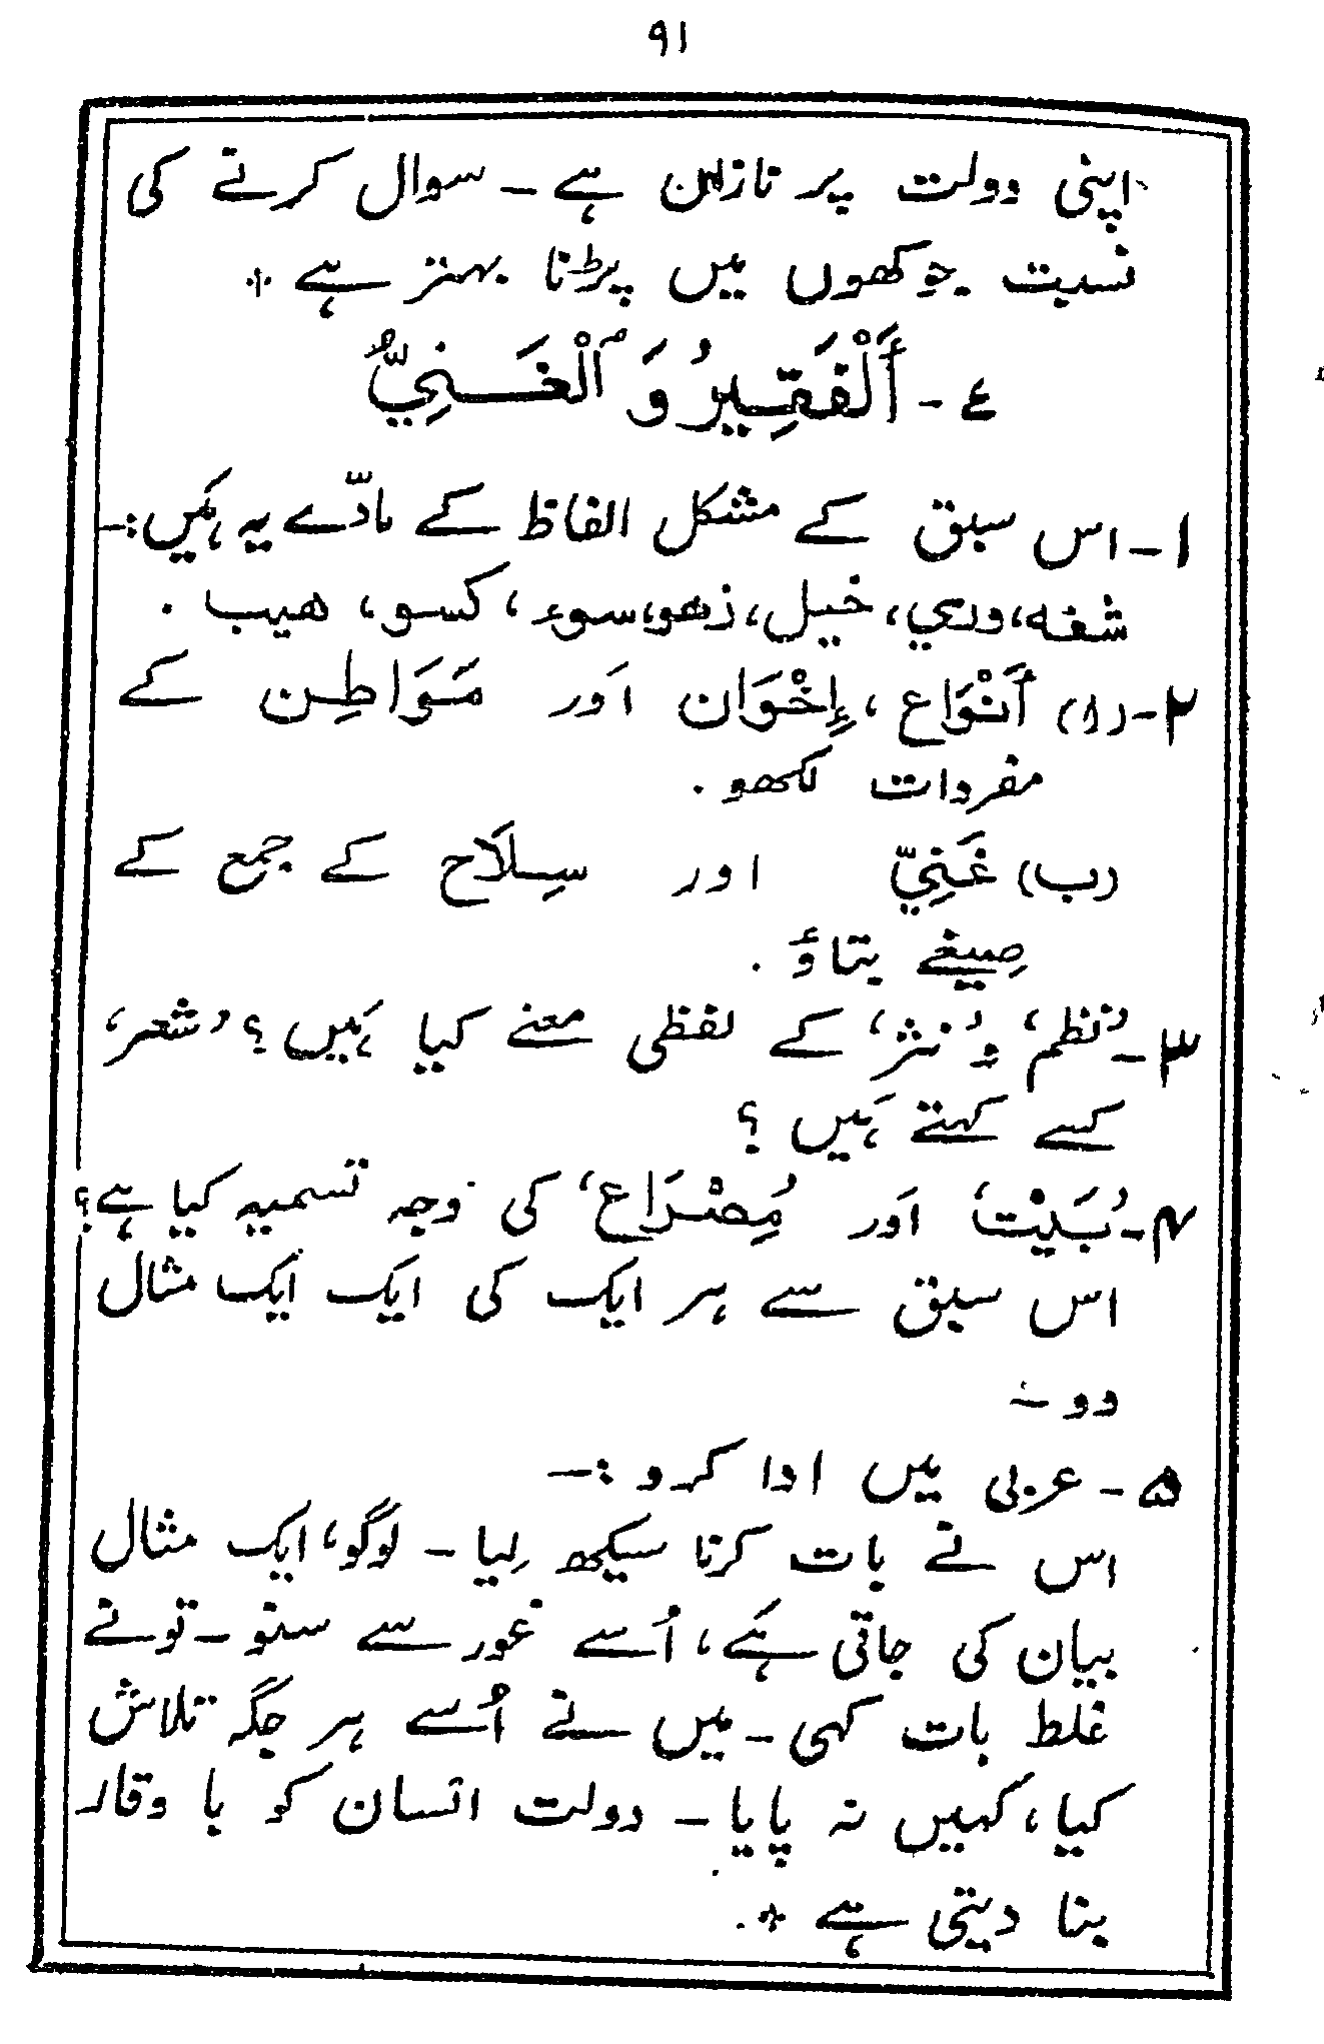 ۹۱
اپنی دولت پر نازاں ہے ۔ سوال کرنے کی
نسبت جوکھوں میں پڑنا بہتر ہے ٭
ع ۔ أَلْفَقِيرُ وَ ٱلْغَنِيُّ
۱ ۔ اس سبق کے مشکل الفاظ کے مادّے یہ ہَیں :۔
شفه، وري، خيل، زهو، سوء، كسو، هيب .
۲ ۔ (ا) أَنْوَاع ، إِخْوَان اَور مَوَاطِن کے
مفردات لکھو .
(ب) غَنِيّ اور سِلَاح کے جمع کے
صِیغے بتاؤ .
۳ ۔ ’نظم‘ و ’نثر‘ کے لفظی معنے کیا ہَیں ؟ ’شعر‘
کسے کہتے ہَیں ؟
۴ ۔ ’بَيْت‘ اَور ’مِصْرَاع‘ کی وجہ تسمیہ کیا ہے ؟
اس سبق سے ہر ایک کی ایک ایک مثال
دو ۔
۵ ۔ عربی میں ادا کرو :۔
اس نے بات کرنا سیکھ لِیا ۔ لوگو، ایک مثال
بیان کی جاتی ہَے ، اُسے غور سے سنو ۔ تونے
غلط بات کہی ۔ میں نے اُسے ہر جگہ تلاش
کیا ، کہیں نہ پایا ۔ دولت انسان کو با وقار
بنا دیتی ہے ٭